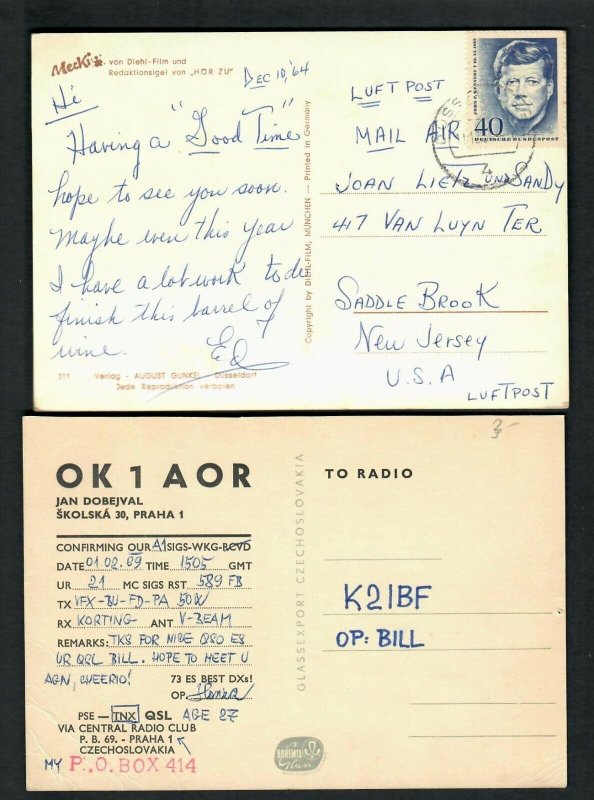 Mecki von Diehl-Film und
Redaktionsigel von „HÖR ZU"
DEC 10, '64
Hi
Having a "Good Time"
hope to see you soon.
Maybe even this year
I have a lot work to do
finish this barrel of
wine.
Ed
511 Verlag - AUGUST GUNKEL - Düsseldorf
Jede Reproduktion verboten
Copyright by DIEHL-FILM, MÜNCHEN - Printed in Germany
JOHN F. KENNEDY
40
DEUTSCHE BUNDESPOST
LUFT POST
MAIL AIR
JOAN LIETZ UND SANDY
417 VAN LUYN TER
SADDLE BROOK
NEW JERSEY
U.S.A
LUFTPOST
OK 1 AOR
JAN DOBEJVAL
ŠKOLSKÁ 30, PRAHA 1
CONFIRMING OUR A1 SIGS-WKG-RCVD
DATE 01 02 69 TIME 1505 GMT
UR 21 MC SIGS RST 589 FB
TX VFX-BU-FD-PA 50W
RX KORTING ANT V-BEAM
REMARKS: TKS FOR NICE QSO ES
UR QSL BILL. HOPE TO MEET U
AGN, CHEERIO! 73 ES BEST DXs!
OP.
PSE - TNX QSL AGE 27
VIA CENTRAL RADIO CLUB
P. B. 69. - PRAHA 1
CZECHOSLOVAKIA
MY P.O.BOX 414
GLASSEXPORT CZECHOSLOVAKIA
TO RADIO
K2IBF
OP: BILL
BOHEMIA
Glass